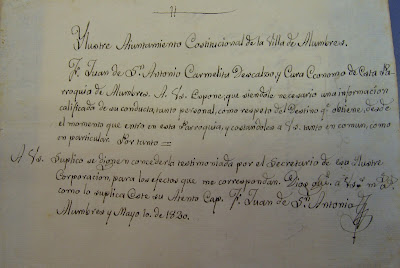 Ylustre Ayuntamiento Costitucional de la Villa de Mambres.
F. Juan de Sn. Antonio Carmelita Descalzo, y Cura Economo de Esta Par-
roquia de Mambres. A. Vs. Espone, que siendole necesario una informacion
calificada de su conducta, tanto personal, como respeto del Destino qe. obtiene, desde
el momento que entró en esta Parroquia, y costandoles a Vs. tanto en comun, como
en particular. Por tanto =
A. Vs. Suplico se dignen concederla testimoniada por el Secretario de esa Ylustre
Corporacion, para los efectos que me correspondan. Dios a Vs. m. a.
como lo suplica Este su Atento Cap. F. Juan de Sn. Antonio
Mambres y Mayo 10. de 1820.